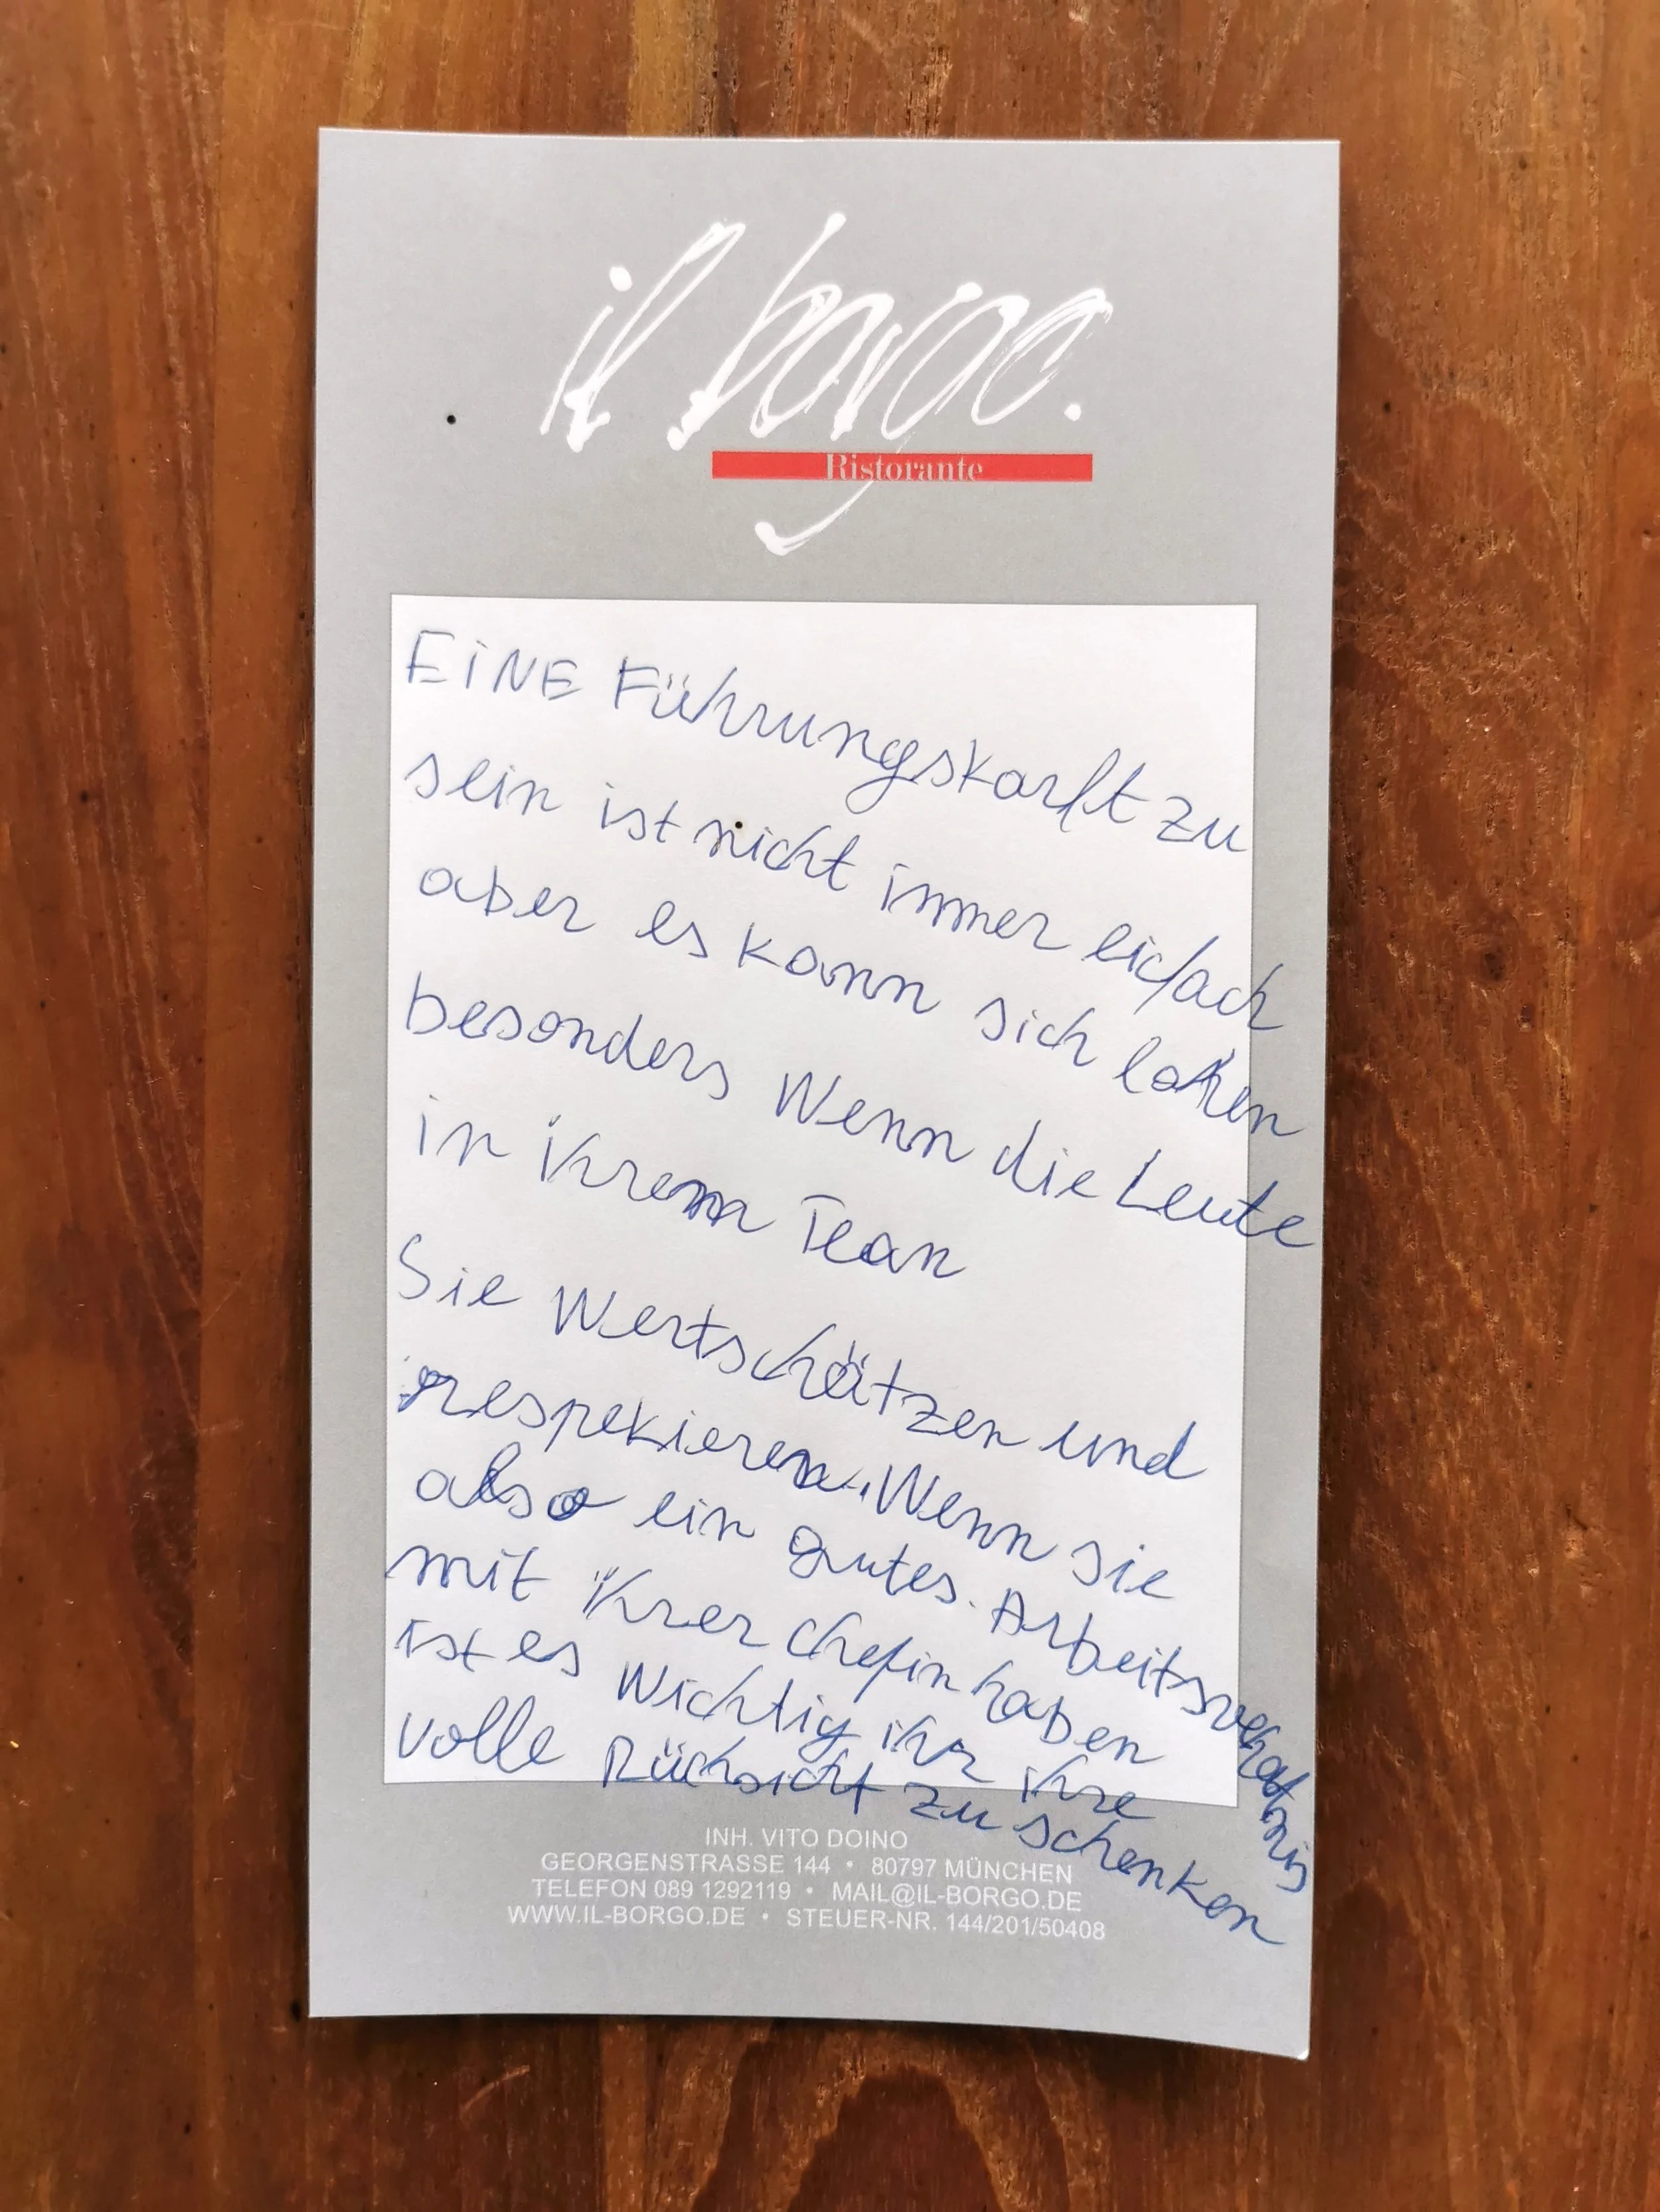 il borgo.
Ristorante
EINE Führungskarft zu
sein ist nicht immer eifach
aber es kann sich lohen
besonders Wenn die Leute
in ihrem Team
Sie Wertschätzen und
respekieren. Wenn sie
also ein gutes Arbeitsverhatnis
mit ihrer chefin haben
ist es Wichtig ihr ihre
volle Rücksicht zu schenken
INH. VITO DOINO
GEORGENSTRASSE 144 • 80797 MÜNCHEN
TELEFON 089 1292119 • MAIL@IL-BORGO.DE
WWW.IL-BORGO.DE • STEUER-NR. 144/201/50408